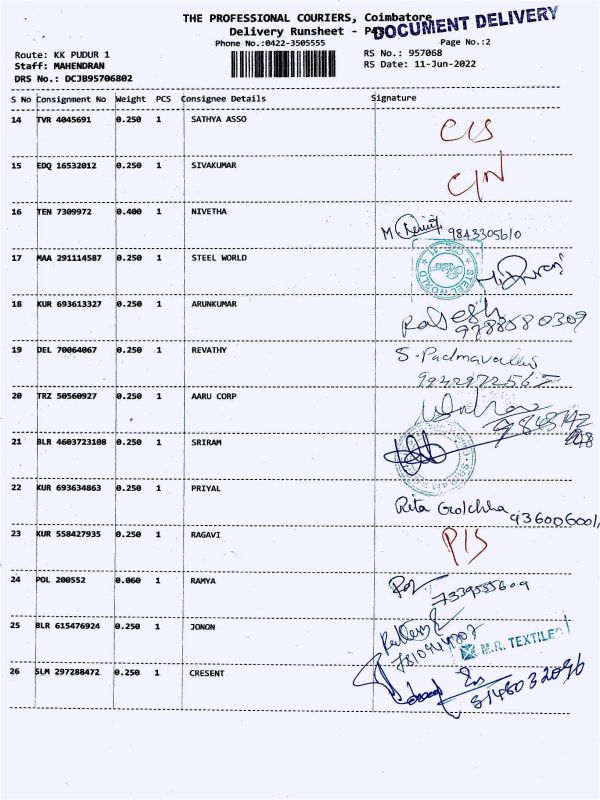 THE PROFESSIONAL COURIERS, Coimbatore
DOCUMENT DELIVERY
Delivery Runsheet -
Phone No.:0422-3505555
Page No.:2
Route: KK PUDUR 1
RS No.: 957068
Staff: MAHENDRAN
RS Date: 11-Jun-2022
DRS No.: DCJB95706802
S No Consignment No Weight PCS Consignee Details Signature
14 TVR 4045691 0.250 1 SATHYA ASSO
C/S
15 EDQ 16532012 0.250 1 SIVAKUMAR
C/N
16 TEN 7309972 0.400 1 NIVETHA
M 9843305610
17 MAA 291114587 0.250 1 STEEL WORLD
STEEL WORLD
18 KUR 693613327 0.250 1 ARUNKUMAR
9788580309
19 DEL 70064067 0.250 1 REVATHY
S. Padmavathy
20 TRZ 50560927 0.250 1 AARU CORP
21 BLR 4603723108 0.250 1 SRIRAM
22 KUR 693634863 0.250 1 PRIYAL
Rita Golchha 936006001
23 KUR 558427935 0.250 1 RAGAVI
P/S
24 POL 200552 0.060 1 RAMYA
25 BLR 615476924 0.250 1 JONON
M.R. TEXTILE
26 SLM 297288472 0.250 1 CRESENT